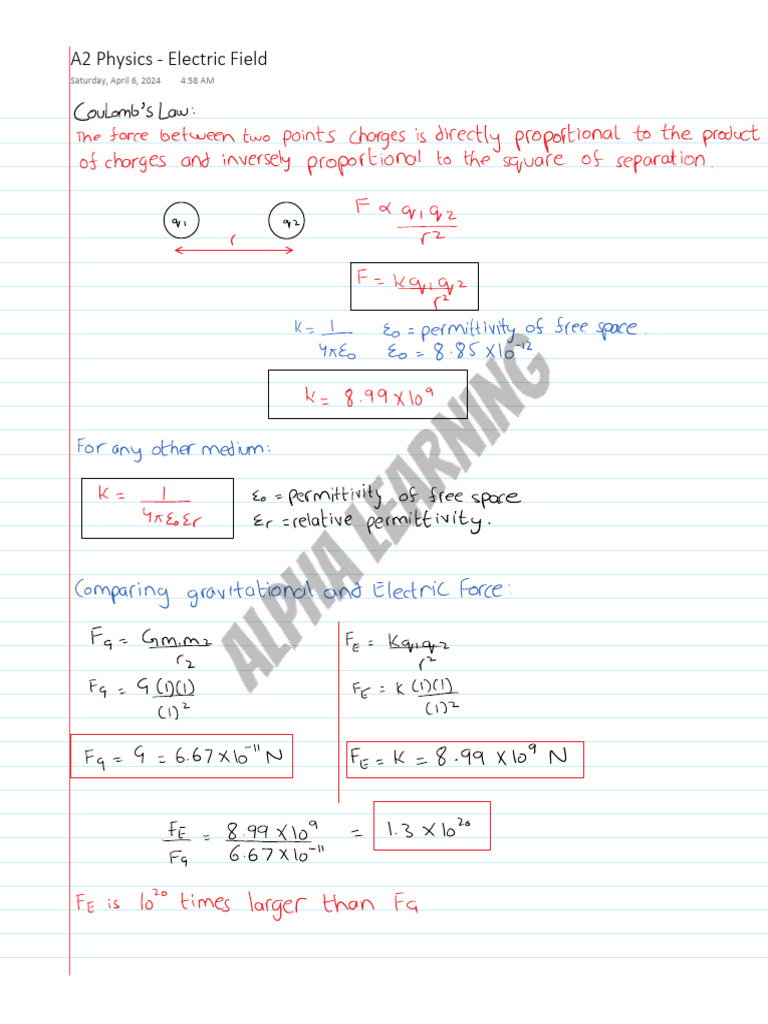 A2 Physics - Electric Field
Saturday, April 6, 2024 4:58 AM
Coulomb's Law:
The force between two points charges is directly proportional to the product
of charges and inversely proportional to the square of separation.
q1 q2 r
F ∝ q1 q2 / r²
F = kq1 q2 / r²
K = 1 / 4πε0 ε0 = permittivity of free space.
ε0 = 8.85 × 10⁻¹²
k = 8.99 × 10⁹
For any other medium:
K = 1 / 4πε0εr
ε0 = permittivity of free space
εr = relative permittivity.
Comparing gravitational and Electric Force:
Fg = Gm1m2 / r2
Fg = G(1)(1) / (1)²
Fg = G = 6.67×10⁻¹¹ N
FE = Kq1q2 / r²
FE = K (1)(1) / (1)²
FE = K = 8.99 × 10⁹ N
FE / Fg = 8.99 × 10⁹ / 6.67×10⁻¹¹ = 1.3 × 10²⁰
FE is 10²⁰ times larger than Fg
ALPHA LEARNING